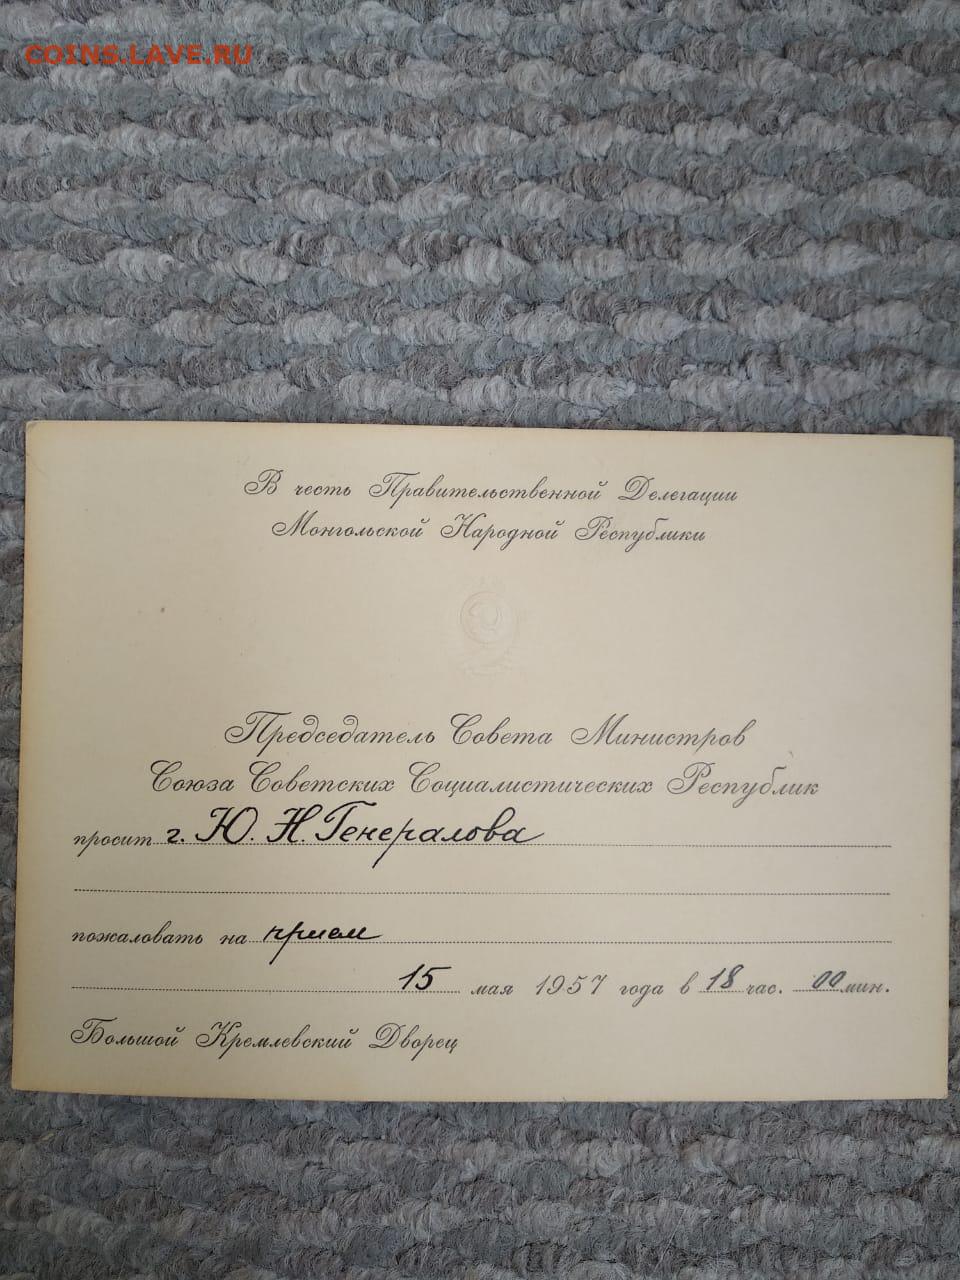 COINS.LAVE.RU
В честь Правительственной Делегации
Монгольской Народной Республики
Председатель Совета Министров
Союза Советских Социалистических Республик
просит г. Ю. Н. Генералова
пожаловать на прием
15 мая 1957 года в 18 час. 00 мин.
Большой Кремлевский Дворец